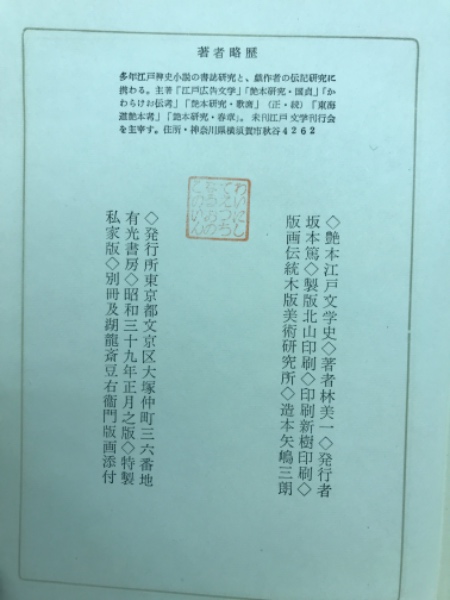 著者略歴
多年江戸稗史小説の書誌研究と、戯作者の伝記研究に
携わる。主著『江戸広告文学』『艶本研究・国貞』『か
わらけお伝考』『艶本研究・歌麿』(正・続)『東海
道艶本考』『艶本研究・春章』。未刊江戸文学刊行会
を主宰す。住所・神奈川県横須賀市秋谷4262
◇艶本江戸文学史◇著者林美一◇発行者
坂本篤◇製版北山印刷◇印刷新樹印刷◇
版画伝統木版美術研究所◇造本矢嶋三朗
◇発行所東京都文京区大塚仲町三六番地
有光書房◇昭和三十九年正月之版◇特製
私家版◇別冊及湖龍斎豆右衞門版画添付